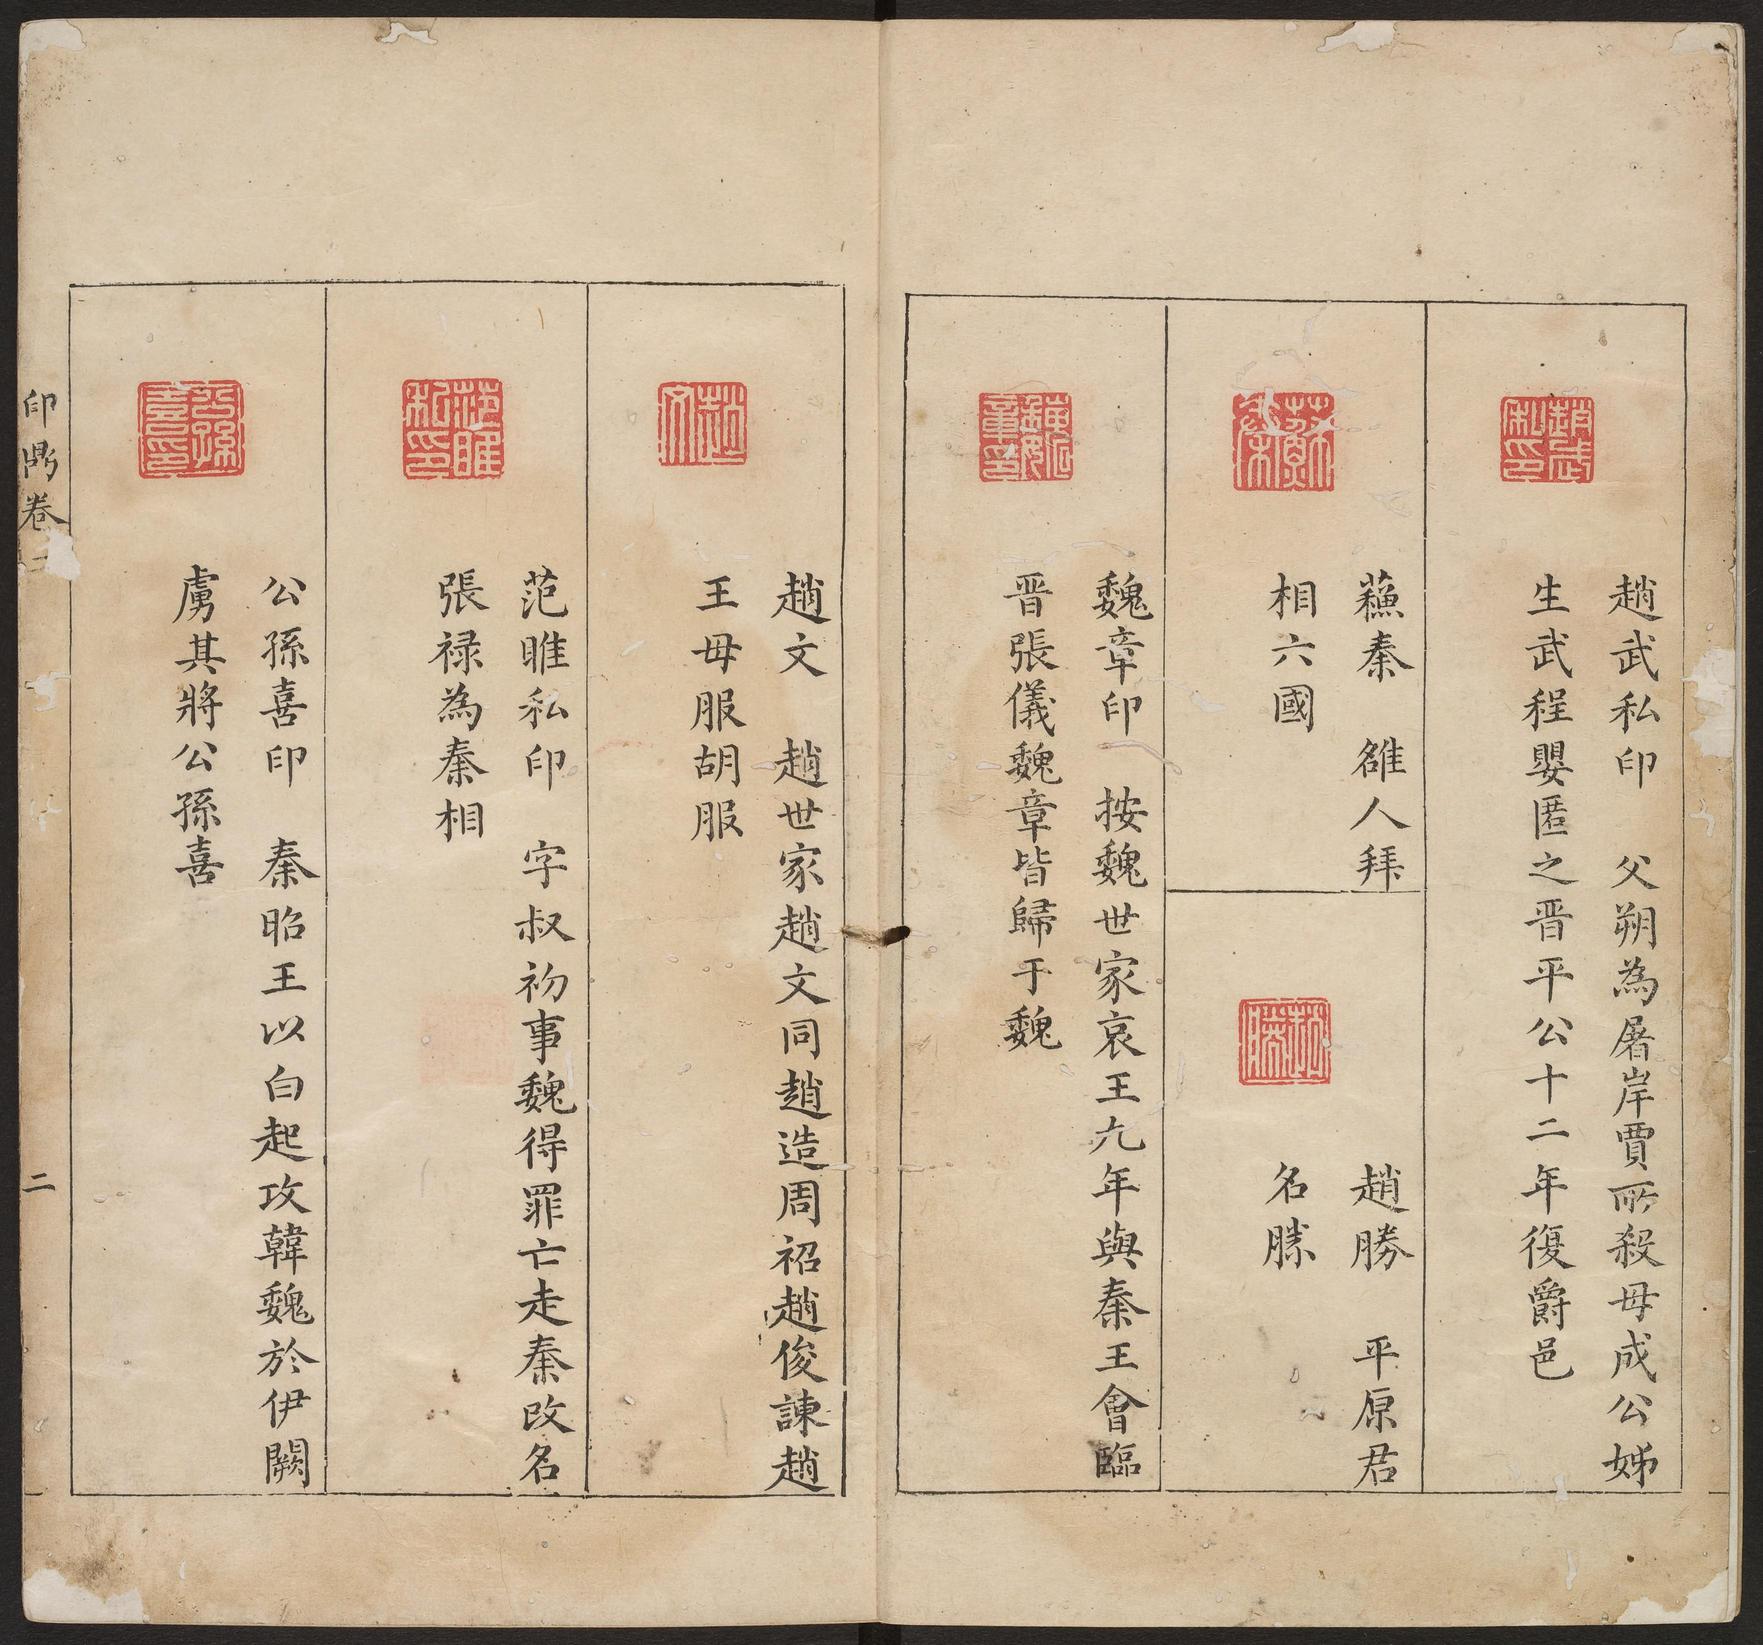 趙武私印
趙武私印　父朔為屠岸賈所殺母成公姊
生武程嬰匿之晋平公十二年復爵邑
蘇秦
蘓秦　雒人拜
相六國
趙勝
趙勝　平原君
名勝
魏章印
魏章印　按魏世家哀王九年與秦王會臨
晋張儀魏章皆歸于魏
趙文
趙文　趙世家趙文同趙造周袑趙俊諫趙
王毋服胡服
范睢私印
范睢私印　字叔初事魏得罪亡走秦改名
張禄為秦相
公孫喜印
公孫喜印　秦昭王以白起攻韓魏於伊闕
虜其將公孫喜
印鼎卷二
二